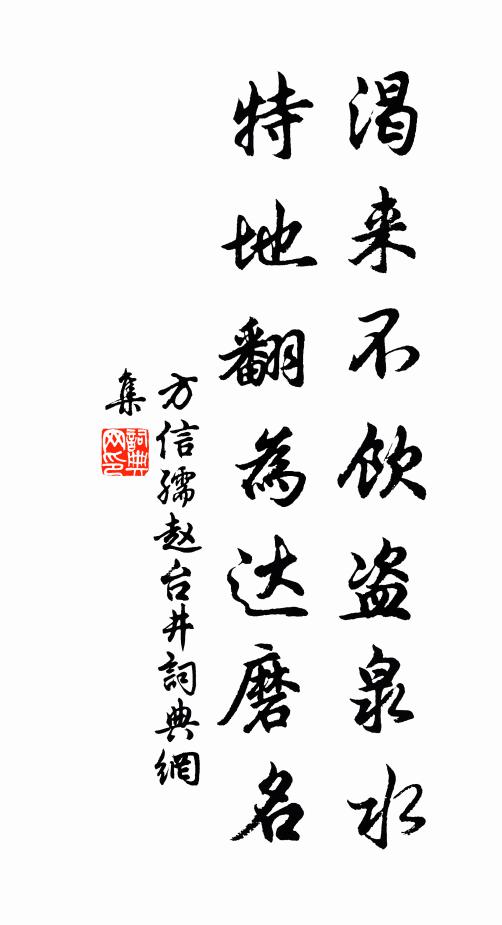 渴来不饮盗泉水
特地翻為达磨名
方信孺赵台井詞典網
集
詞典网印